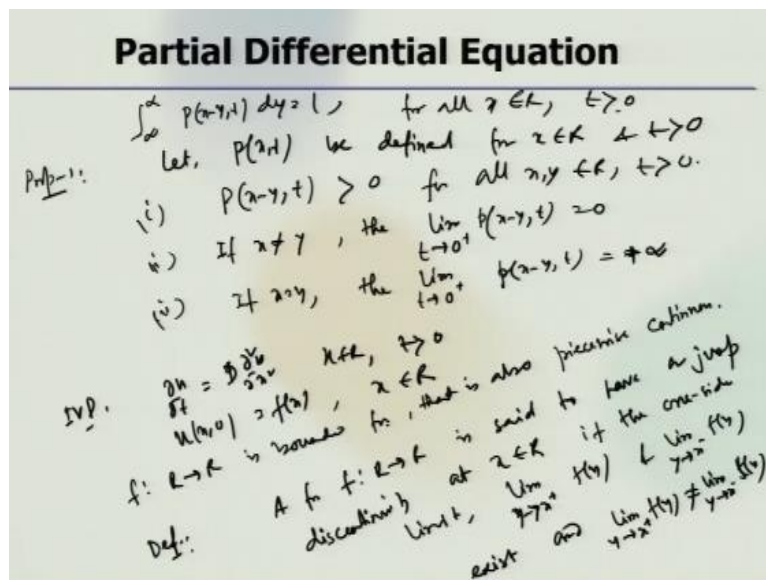 Partial Differential Equation
∫_∞^∞ p(x-y,t) dy = 1, for all x ∈ R, t > 0
Prop-1: Let, p(x,t) be defined for x ∈ R & t > 0
(i) p(x-y,t) > 0 for all x,y ∈ R, t > 0.
ii) If x ≠ y, the lim_{t→0⁺} p(x-y,t) = 0
If x = y, the lim_{t→0⁺} p(x-y,t) = +∞
IVP. ∂u/∂t = D ∂²u/∂x² x ∈ R, t > 0
u(x,0) = f(x), x ∈ R
f: R→R is bounded fn, that is also piecewise continuous.
Def: A fn f: R→R is said to have a jump
discontinuity at x ∈ R if the one-side
limit, lim_{y→x⁺} f(y) & lim_{y→x⁻} f(y)
exist and lim_{y→x⁺} f(y) ≠ lim_{y→x⁻} f(y)